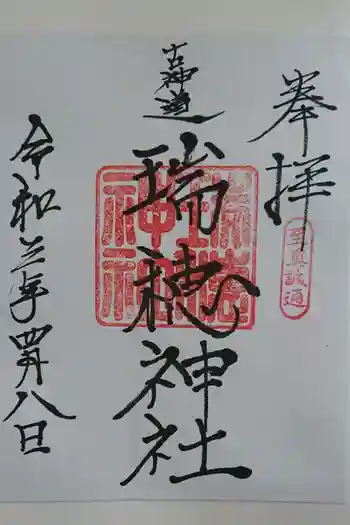 奉拝
至真誠通
古神道
瑞穂神社
令和三年四月八日